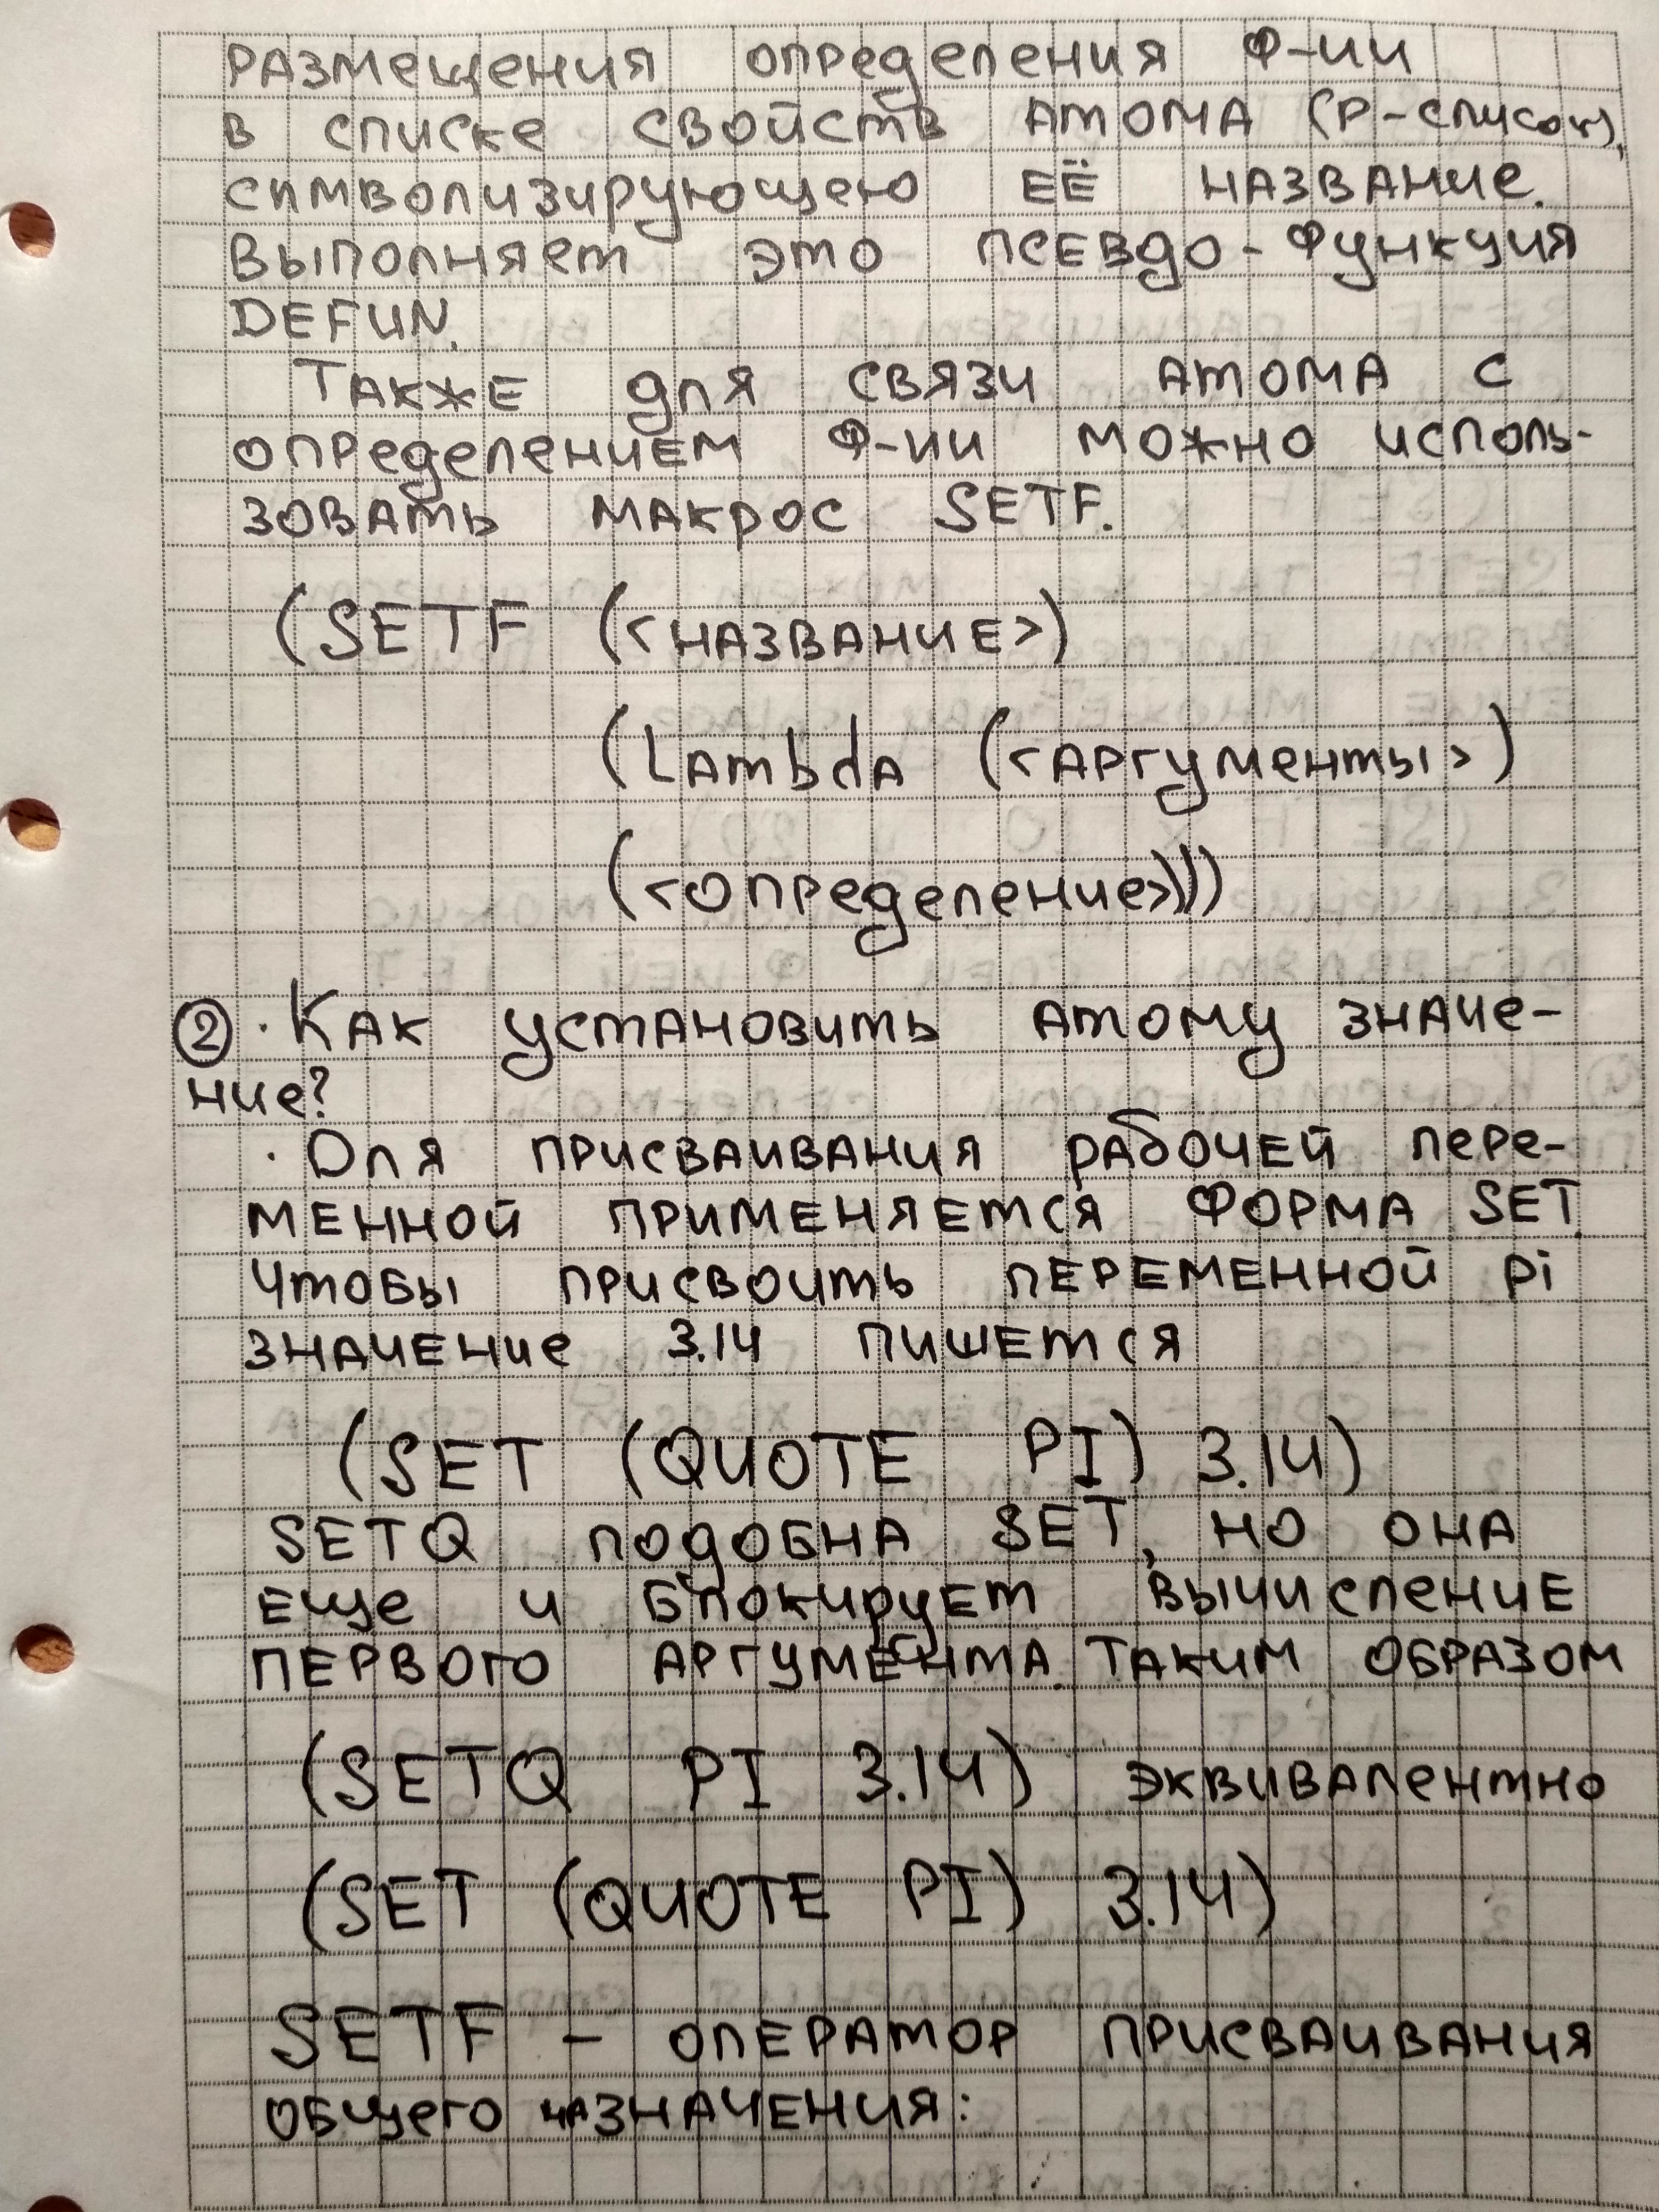 размещения определения ф-ии
в списке свойств атома (Р-список),
символизирующею её название.
Выполняет это псевдо-функция
DEFUN.
Также для связи атома с
определением ф-ии можно исполь-
зовать макрос SETF.
(SETF (<название>)
(Lambda (<аргументы>)
(<определение>)))
② · Как установить атому значе-
ние?
· Для присваивания рабочей пере-
менной применяется форма SET.
Чтобы присвоить переменной pi
значение 3.14 пишется
(SET (QUOTE PI) 3.14)
SETQ подобна SET, но она
еще и блокирует вычисление
первого аргумента. Таким образом
(SETQ PI 3.14) эквивалентно
(SET (QUOTE PI) 3.14)
SETF – оператор присваивания
общего назначения: